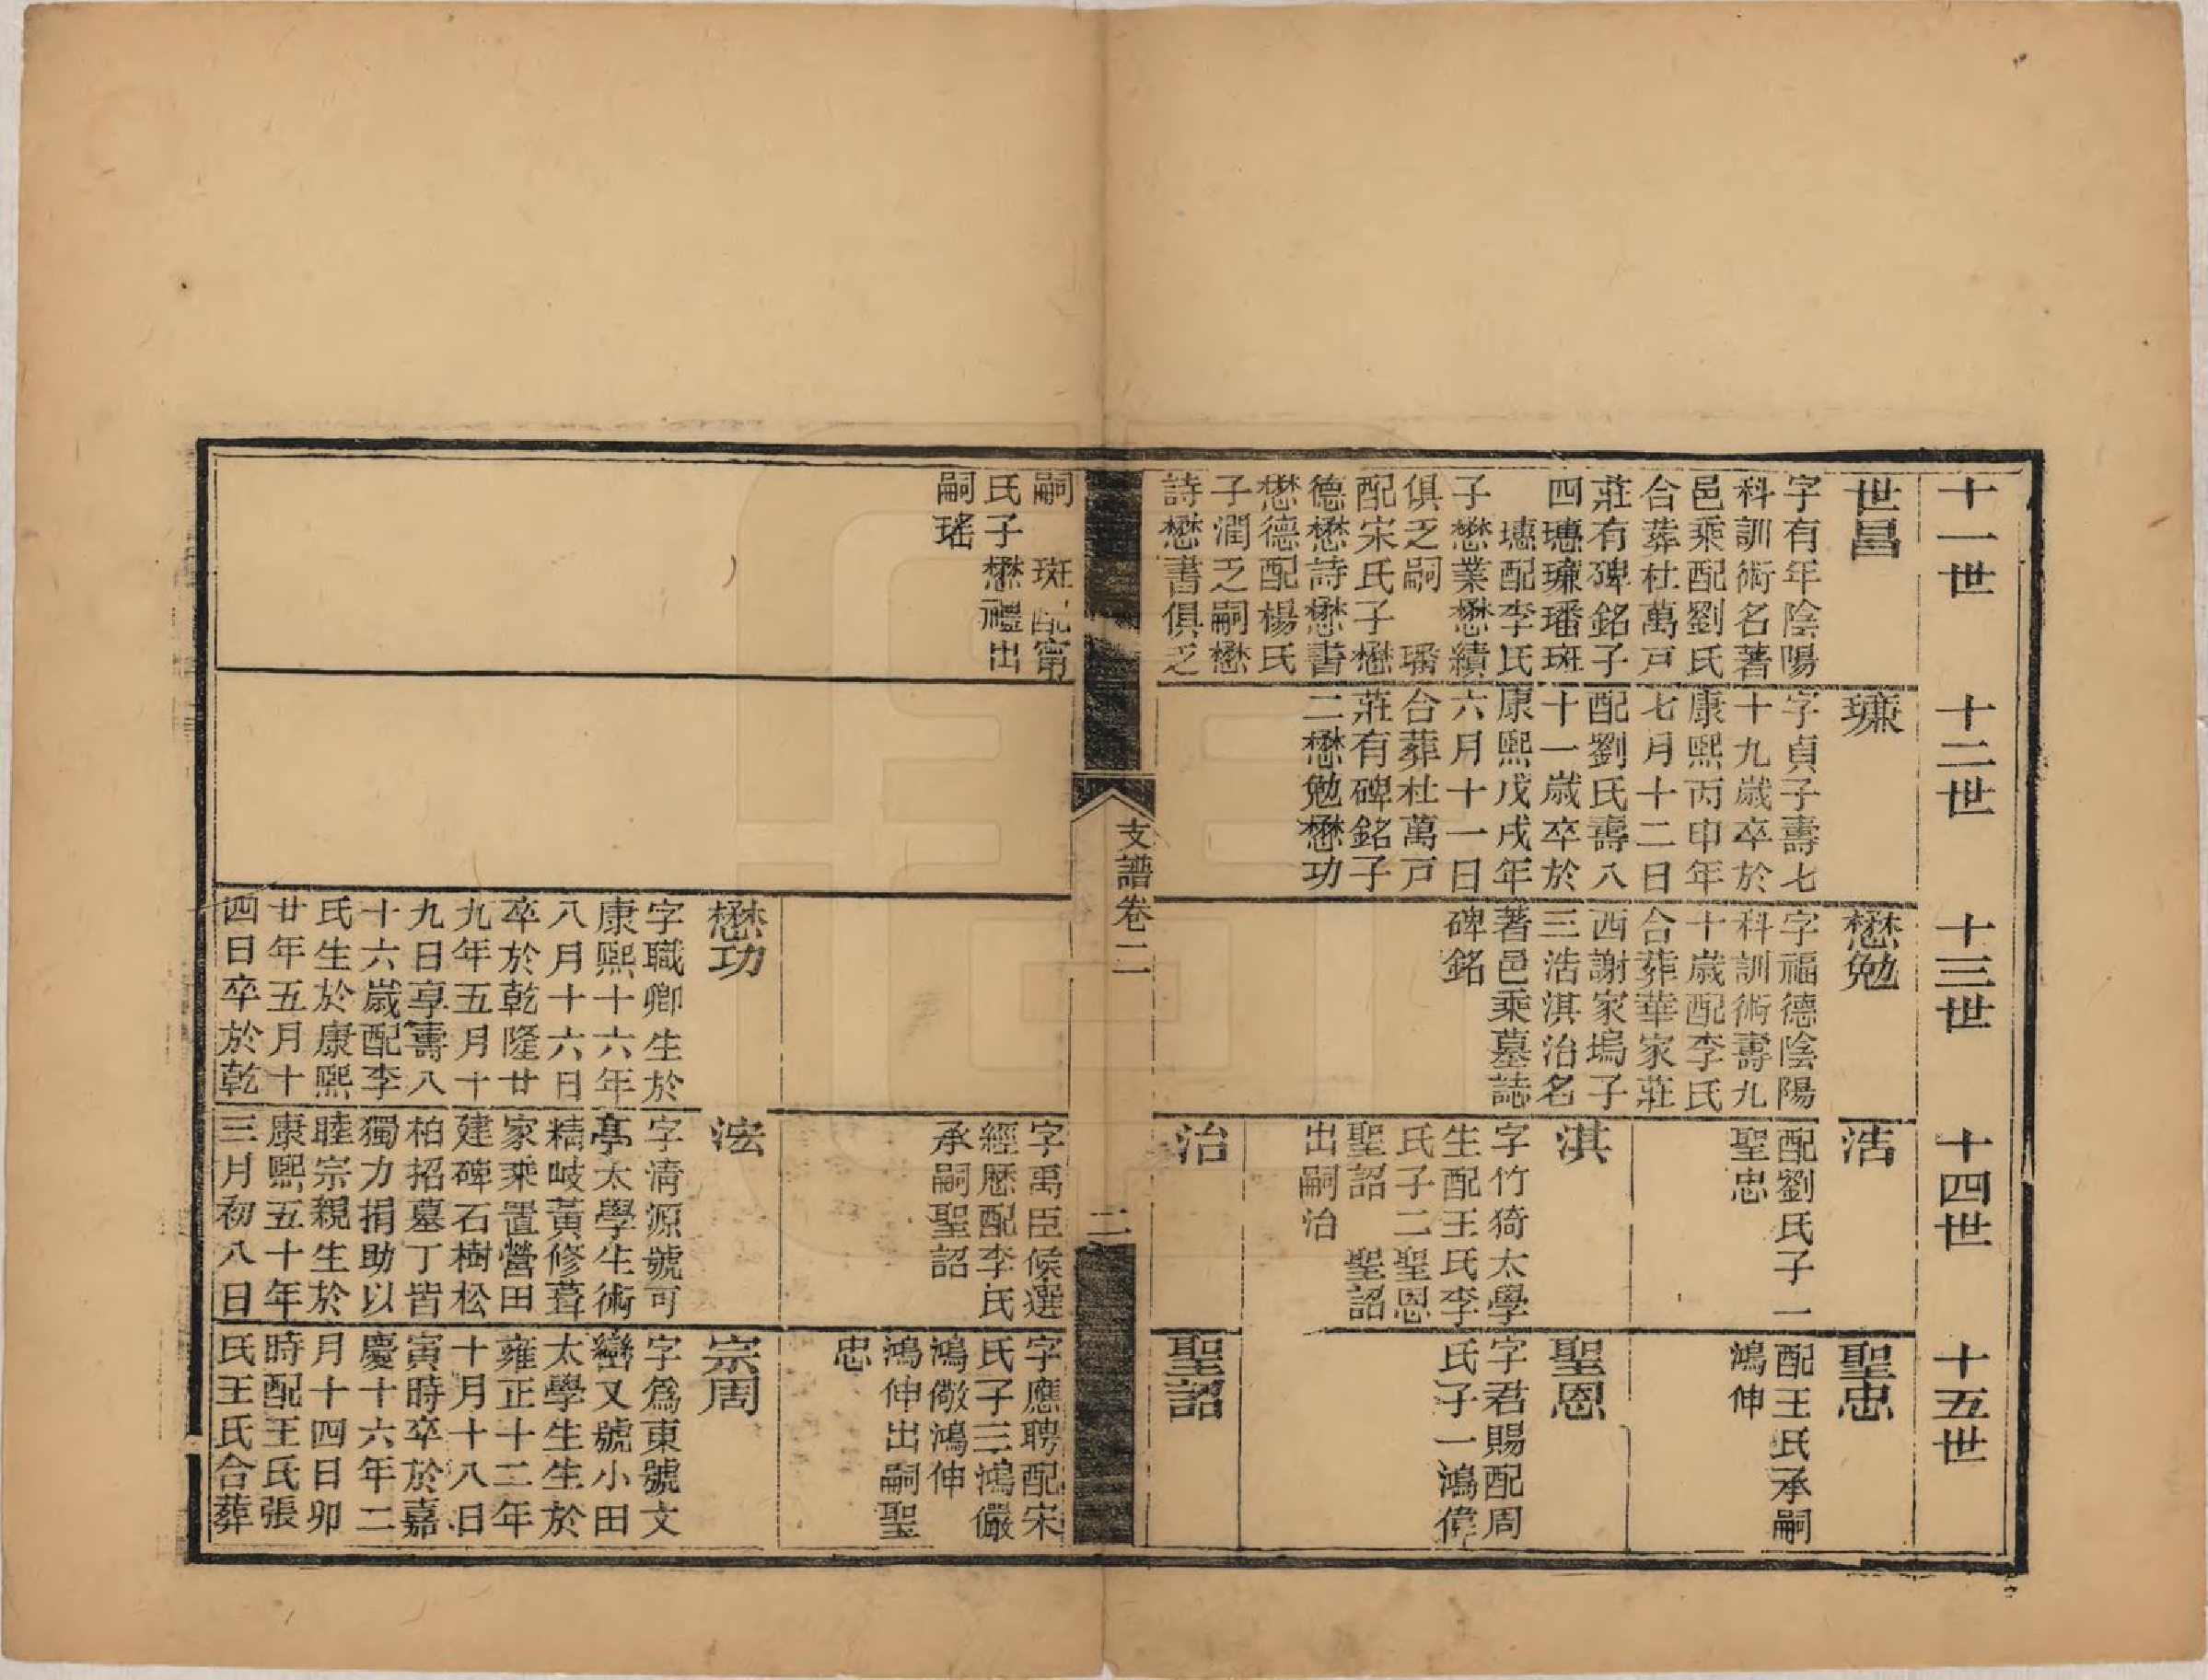 十一世
世昌
字有年陰陽
科訓術名著
邑乘配劉氏
合葬杜萬戸
莊有碑銘子
四璤璩璠斑
璤配李氏
子懋業懋績
俱乏嗣　璠
配宋氏子懋
德懋詩懋書
懋德配楊氏
子潤乏嗣懋
詩懋書俱乏
嗣　斑配甯
氏子懋禮出
嗣瑤
十二世
字貞子壽七
十九歲卒於
康熙丙申年
七月十二日
配劉氏壽八
十一歲卒於
康熙戊戌年
六月十一日
合葬杜萬戸
莊有碑銘子
二懋勉懋功
十三世
懋勉
字福德陰陽
科訓術壽九
十歲配李氏
合葬華家莊
西謝家塢子
三浩淇治名
著邑乘墓誌
碑銘
懋功
字職卿生於
康熙十六年
八月十六日
卒於乾隆廿
九年五月十
九日享壽八
十六歲配李
氏生於康熙
廿年五月十
四日卒於乾
十四世
浩
配劉氏子一
聖忠
淇
字竹猗太學
生配王氏李
氏子二聖恩
聖詔　聖詔
出嗣治
治
字萬臣候選
經歷配李氏
承嗣聖詔
浤
字清源號可
亭太學生術
精岐黃修葺
家乘置營田
建碑石樹松
柏招墓丁皆
獨力捐助以
睦宗親生於
康熙五十年
三月初八日
十五世
聖忠
配王氏承嗣
鴻伸
聖恩
字君賜配周
氏子一鴻偉
聖詔
字應聘配宋
氏子三鴻儼
鴻儆鴻伸
鴻伸出嗣聖
忠
宗周
字為東號文
巒又號小田
太學生生於
雍正十二年
十月十八日
寅時卒於嘉
慶十六年二
月十四日卯
時配王氏張
氏王氏合葬
支譜卷二
二